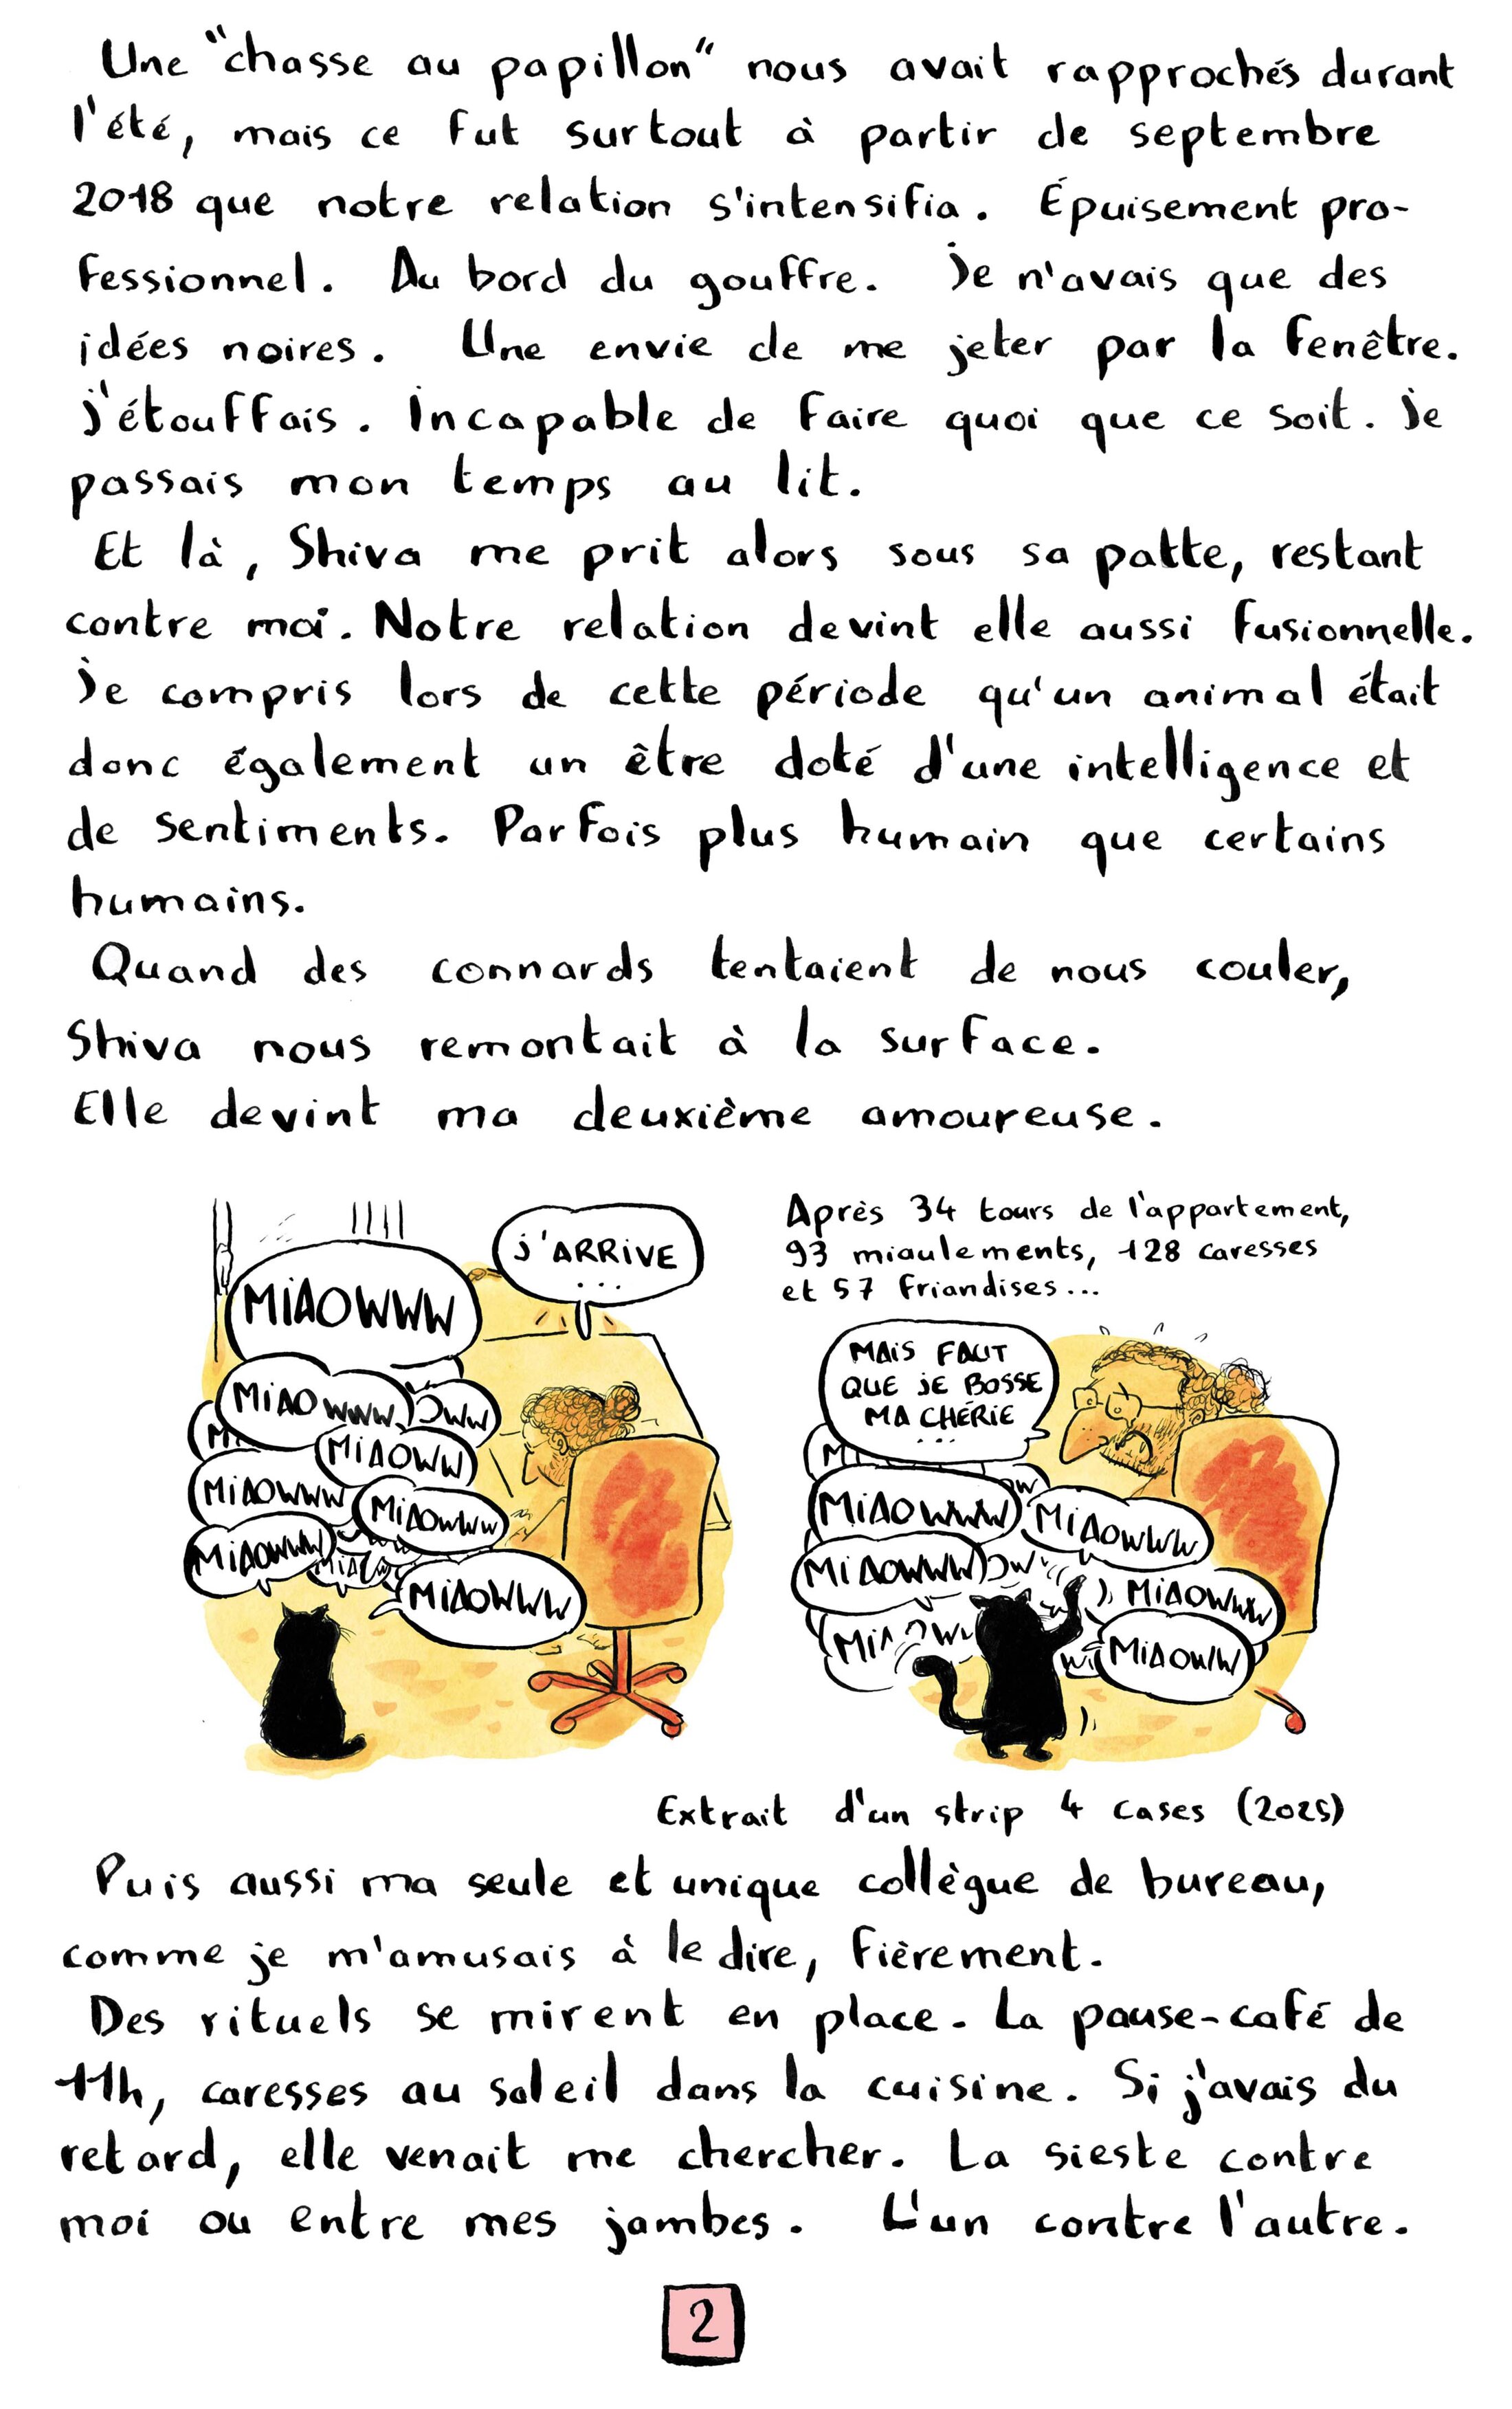 Une "chasse au papillon" nous avait rapprochés durant
l'été, mais ce fut surtout à partir de septembre
2018 que notre relation s'intensifia. Épuisement pro-
fessionnel. Au bord du gouffre. Je n'avais que des
idées noires. Une envie de me jeter par la fenêtre.
J'étouffais. Incapable de faire quoi que ce soit. Je
passais mon temps au lit.
Et là, Shiva me prit alors sous sa patte, restant
contre moi. Notre relation devint elle aussi fusionnelle.
Je compris lors de cette période qu'un animal était
donc également un être doté d'une intelligence et
de sentiments. Parfois plus humain que certains
humains.
Quand des connards tentaient de nous couler,
Shiva nous remontait à la surface.
Elle devint ma deuxième amoureuse.
J'ARRIVE
...
MIAOWWW
MIAOWWW
OWW
MIAOWW
MIAOWWW
MIAOWWW
MIAOWWW
MIAOWWW
Après 34 tours de l'appartement,
93 miaulements, 128 caresses
et 57 friandises...
MAIS FAUT
QUE JE BOSSE
MA CHÉRIE
...
MIAOWWW
MIAOWWW
MIAOWWW
OW
MIAOWWW
MIAOWW
Extrait d'un strip 4 cases (2025)
Puis aussi ma seule et unique collègue de bureau,
comme je m'amusais à le dire, fièrement.
Des rituels se mirent en place. La pause-café de
11h, caresses au soleil dans la cuisine. Si j'avais du
retard, elle venait me chercher. La sieste contre
moi ou entre mes jambes. L'un contre l'autre.
2